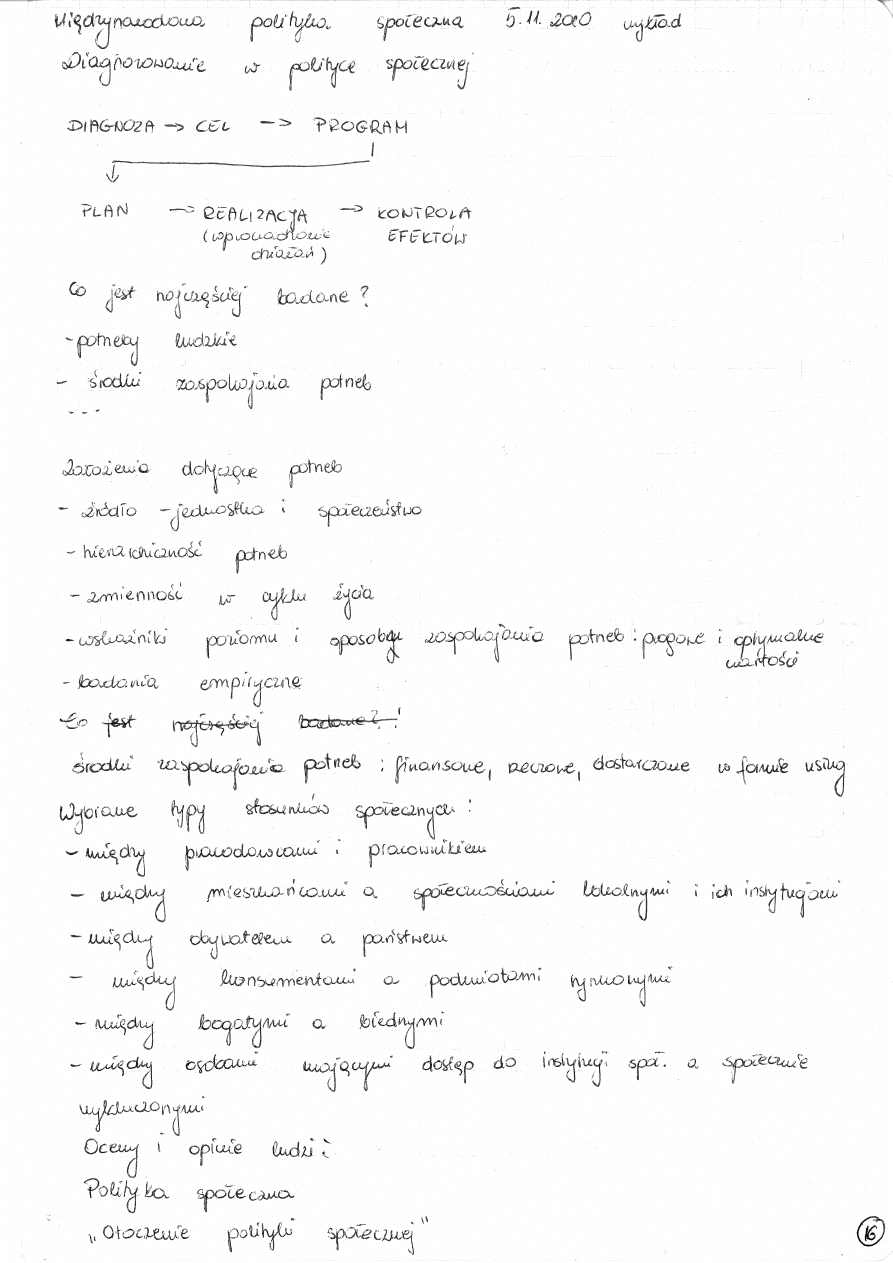 Międzynarodowa polityka społeczna 5.11.2010 wykład
Diagnozowanie w polityce społecznej
DIAGNOZA -> CEL -> PROGRAM
PLAN -> REALIZACJA -> KONTROLA
(wprowadzanie EFEKTÓW
działań)
Co jest najczęściej badane?
- potrzeby ludzkie
- środki zaspokojania potrzeb
...
Założenia dotyczące potrzeb
- źródło - jednostka i społeczeństwo
- hierarchiczność potrzeb
- zmienność w cyklu życia
- wskaźniki poziomu i sposoby zaspokojania potrzeb : progowe i optymalne
wartości
- badania empiryczne
Co jest najczęściej badane?!
środki zaspokojania potrzeb : finansowe, rzeczowe, dostarczane w formie usług
Wybrane typy stosunków społecznych:
- między pracodawcami i pracownikiem
- między mieszkańcami a społecznościami lokalnymi i ich instytucjami
- między obywatelem a państwem
- między konsumentami a podmiotami rynkowymi
- między bogatymi a biednymi
- między osobami mającymi dostęp do instytucji społ. a społecznie
wykluczonymi
Oceny i opinie ludzi:
Polityka społeczna
„Otoczenie polityki społecznej"
16